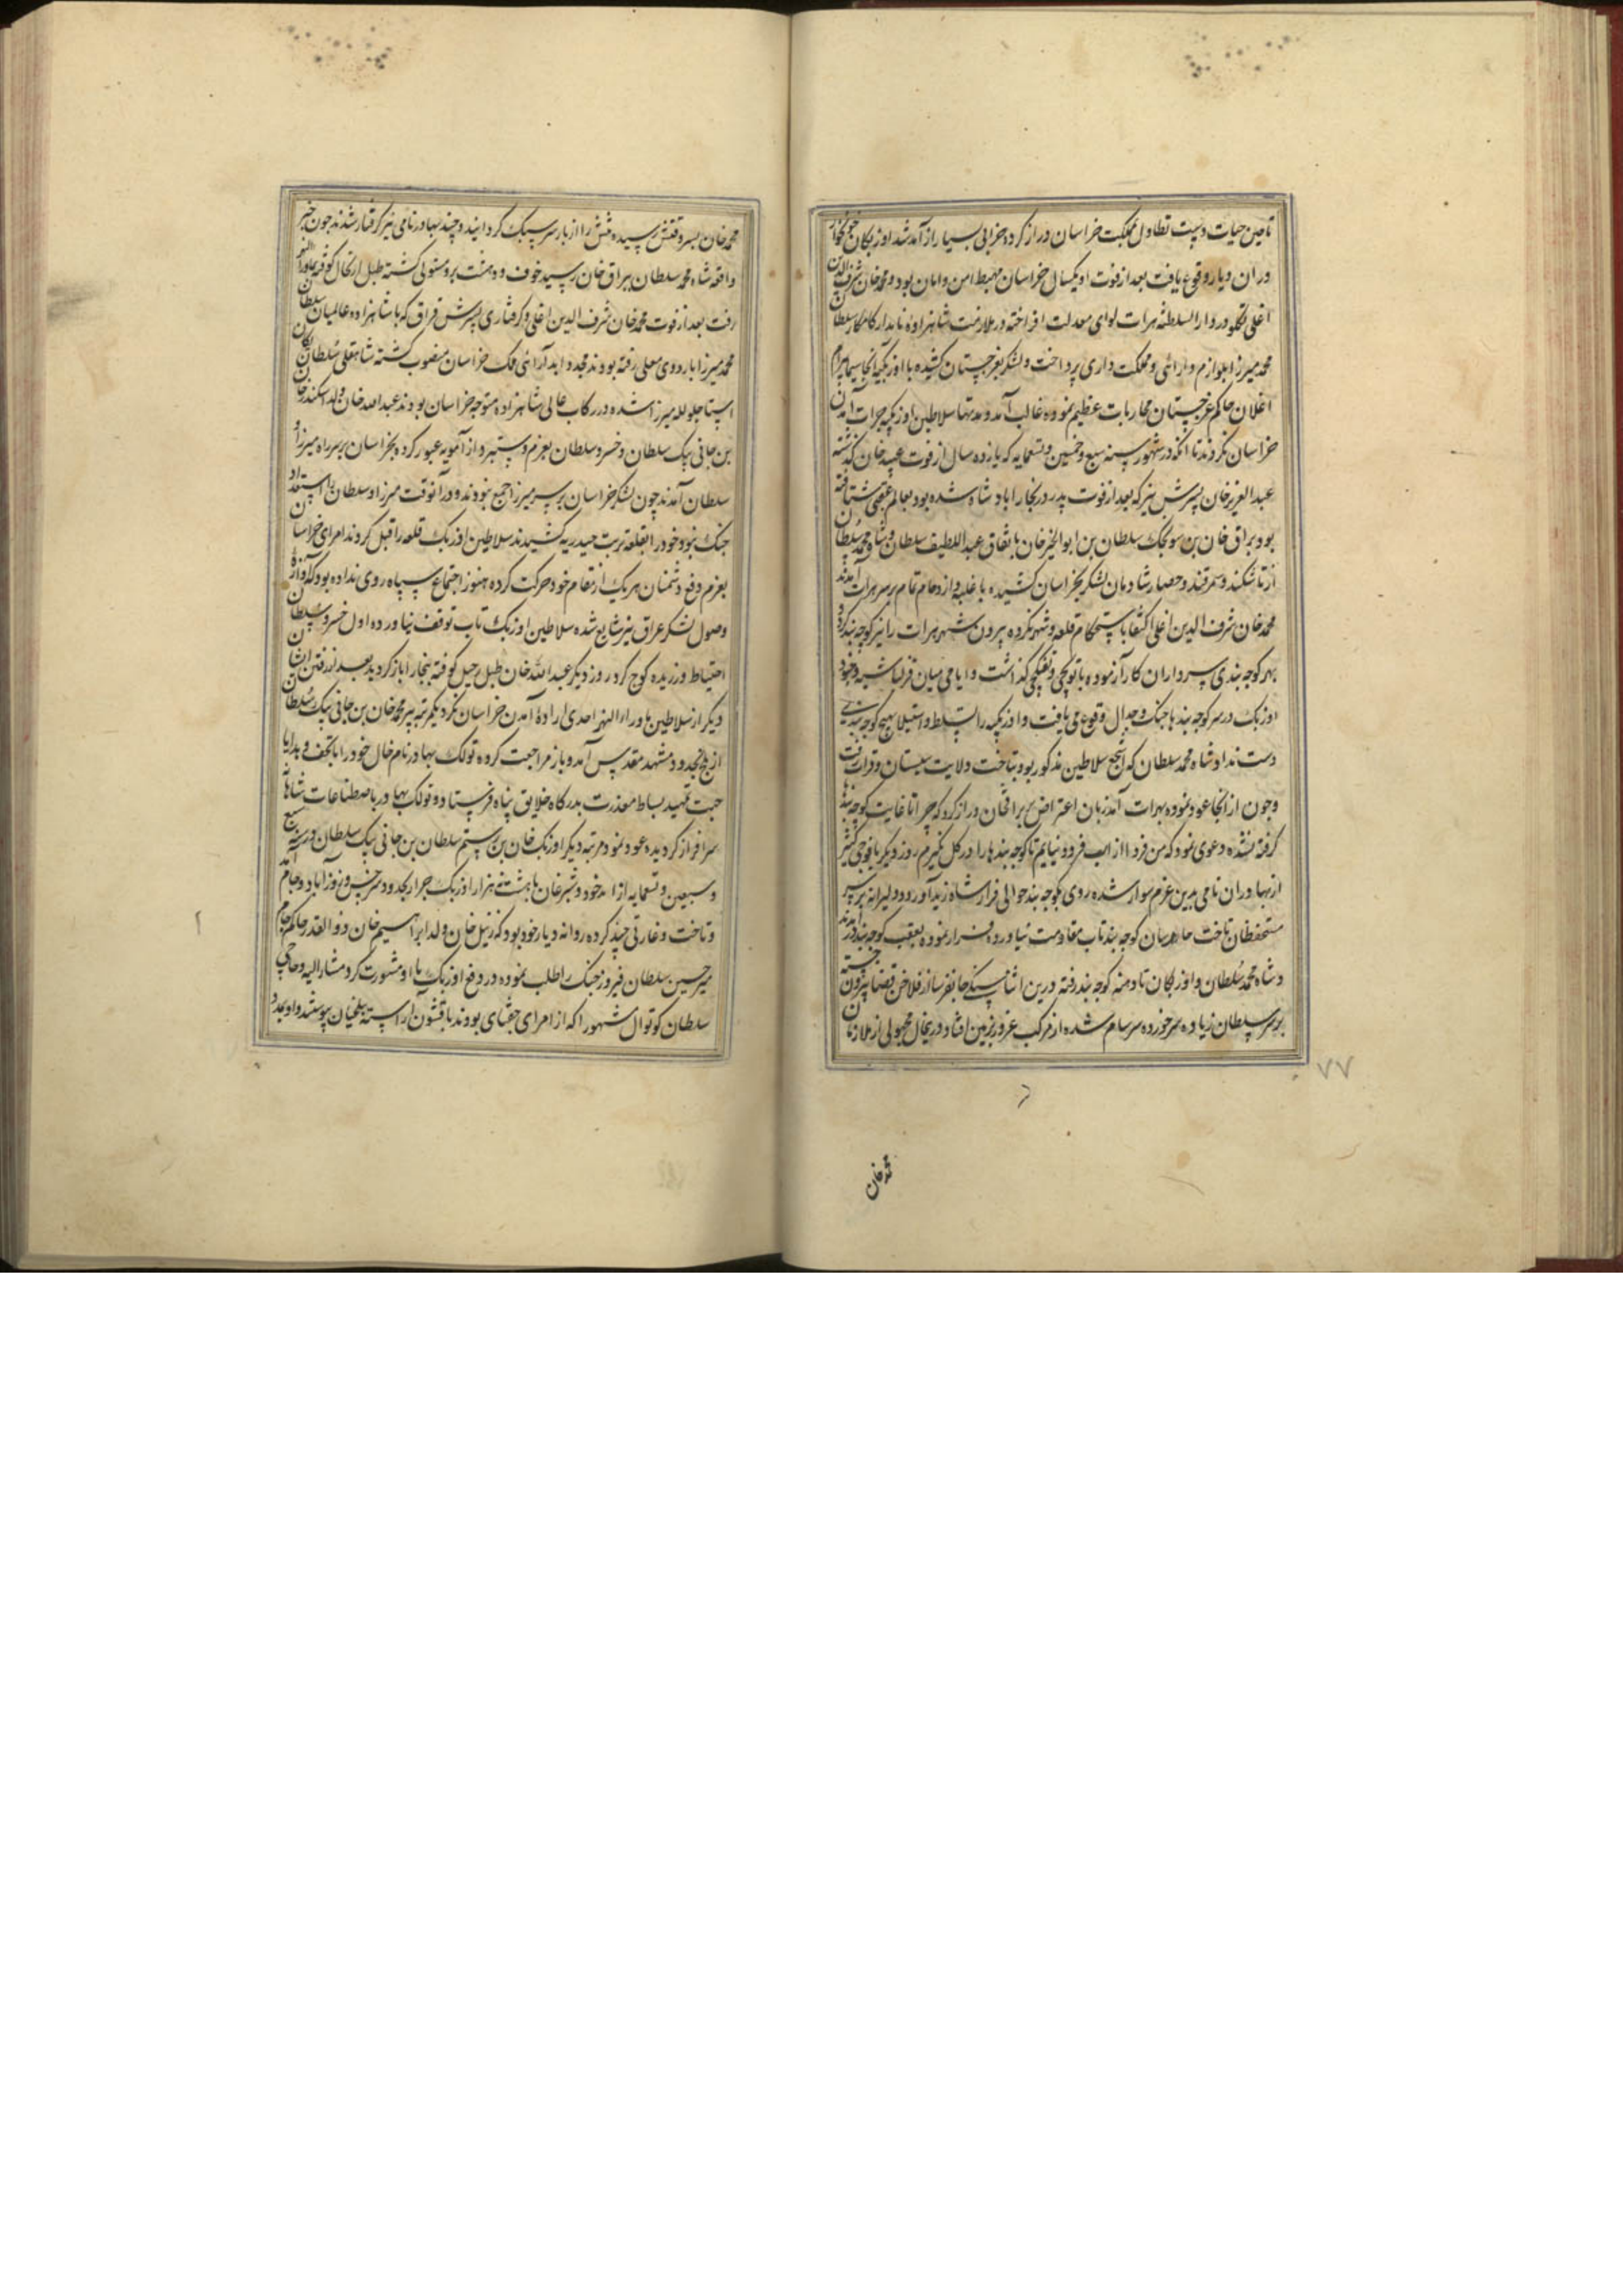 تا حین حیات دست تطاول بمملکت خراسان دراز کرده خرابی بسیار از آمد شد اوزبکان خونخوار
در آن دیار وقوع یافت بعد از فوت او یکسال خراسان مهبط امن و امان بود و محمد خان شرف الدین
اغلی تکلو در دار السلطنه هرات لوای معدلت افراخته در ملازمت شاهزاده نامدار کامکار سلطان
محمد میرزا بلوازم دارائی و مملکت داری پرداخت و لشکر بغرجستان کشیده با اوزبکیه آنجا سیما بیرام
اغلان حاکم غرجستان محاربات عظیم نموده غالب آمد و مدتها سلاطین اوزبکیه جرات آمدن
خراسان نکردند تا آنکه در شهور سنه سبع و خمسین و تسعمایه که یازده سال از فوت عبید خان گذشته
عبد العزیز خان پسرش نیز که بعد از فوت پدر در بخارا پادشاه شده بود بعالم عقبی شتافته
بود براق خان بن سونجک سلطان بن ابو الخیر خان باتفاق عبد اللطیف سلطان و شاه محمد سلطان
از تاشکند و سمرقند و حصار شادمان لشکر بخراسان کشیده با غلبه و ازدحام تمام بر سر هرات آمدند
محمد خان شرف الدین اغلی اکتفا باستحکام قلعه و شهر نکرده بیرون شهر هرات را نیز کوچه بند کرد
بهر کوچه بندی سرداران کار آزموده با توپچی و تفنگچی گذاشت و ایامی میان قزلباشیه و جنود
اوزبک در سر کوچه بندها جنگ و جدال وقوع می یافت و اوزبکیه را تسلط و استیلا بهیچ کوچه بندی
دست نداد شاه محمد سلطان که اشجع سلاطین مذکور بود بتاخت ولایت سیستان و قرات رفت
و چون از آنجا عود نموده بهرات آمد زبان اعتراض بر براقخان دراز کرد که چرا تا غایت کوچه بندها
گرفته نشده و دعوی نمود که من فردا از اسب فرود نیایم تا کوچه بندها را در کل نگیرم روز دیگر با فوجی کثیر
از بهادران نامی بدین عزم سوار شده روی بکوچه بند حوالی فرار شاه زید آورد و دلیرانه بر سر
مستحفظان تاخت حارسان کوچه بند تاب مقاومت نیاورده فرار نموده بعقب کوچه بند در آمدند
و شاه محمد سلطان و اوزبکان تا دهنه کوچه بند رفته درین اثنا سنگ جانفرسا از فلاخن قضا بیرون جسته
بر سر سلطان زیاده سر خورده سرسام شده از مرکب غرور بزمین افتاد در ینحال مجهولی از ملازمان
محمد خان
محمد خان بسر وقتش رسیده تنش را از بار سر سبک گردانید و چند بهادر نامی نیز گرفتار شدند چون خبر
واقعه شاه محمد سلطان ببراق خان رسید خوف و دهشت برو مستولی گشته طبل ارتحال کوفته بماوراءالنهر
رفت بعد از فوت محمد خان شرف الدین اغلی و گرفتاری پسرش قزاق که با شاهزاده عالمیان سلطان
محمد میرزا باردوی معلی رفته بودند مجددا بدارائی ملک خراسان منصوب گشته شاهقلی سلطان یکان
استاجلو لله میرزا شده در رکاب عالی شاهزاده متوجه خراسان بودند عبد الله خان ولد اسکندر خان
بن جانی بیک سلطان و خسرو سلطان بعزم دستبرد از آمویه عبور کرده بخراسان بر سر راه میرزا و
سلطان آمدند چون لشکر خراسان بر سر میرزا جمع نبودند و در آنوقت میرزا و سلطان را استعداد
جنگ نبود خود را بقلعه تربت حیدریه کشیدند سلاطین اوزبک قلعه را قبل کردند امرای خراسان
بعزم دفع دشمنان هر یک از مقام خود حرکت کرده هنوز اجتماع سپاه روی نداده بود که آوازه
وصول لشکر عراق نیز شایع شده سلاطین اوزبک تاب توقف نیاورده اول خسرو سلطان
احتیاط ورزیده کوچ کرد روز دیگر عبد الله خان طبل رحیل کوفته ببخارا باز گردید بعد از رفتن ایشان
دیگر از سلاطین ماوراء النهر احدی اراده آمدن خراسان نکرد یکمرتبه پیر محمد خان بن جانی بیک سلطان
از بلخ بحدود مشهد مقدس آمد و باز مراجعت کرده تولک بهادر نام خال خود را با تحف و هدایا
جهت تمهید بساط معذرت بدرگاه خلایق پناه فرستاد و تولک بهادر باصطناعات شاهانه
سرافراز گردیده عود نمود و مرتبه دیگر اوزبک خان بن رستم سلطان بن جانی بیک سلطان در سنه سبع
و سبعین و تسعمایه از اندخود و شبرغان با هشت هزار اوزبک جرار بحدود سرخس و زورآباد و جام آمد
و تاخت و غارتی چند کرده روانه دیار خود بود که زینل خان ولد ابراهیم خان ذوالقدر حاکم جام
میر حسین سلطان فیروز جنگ را طلب نموده در دفع اوزبک با او مشورت کرد مشار الیه و حاجی
سلطان کوتوال مشهور اکه از امرای جغتای بودند با قشون آراسته بلغیان پیوستند و او بعد و
۷۷